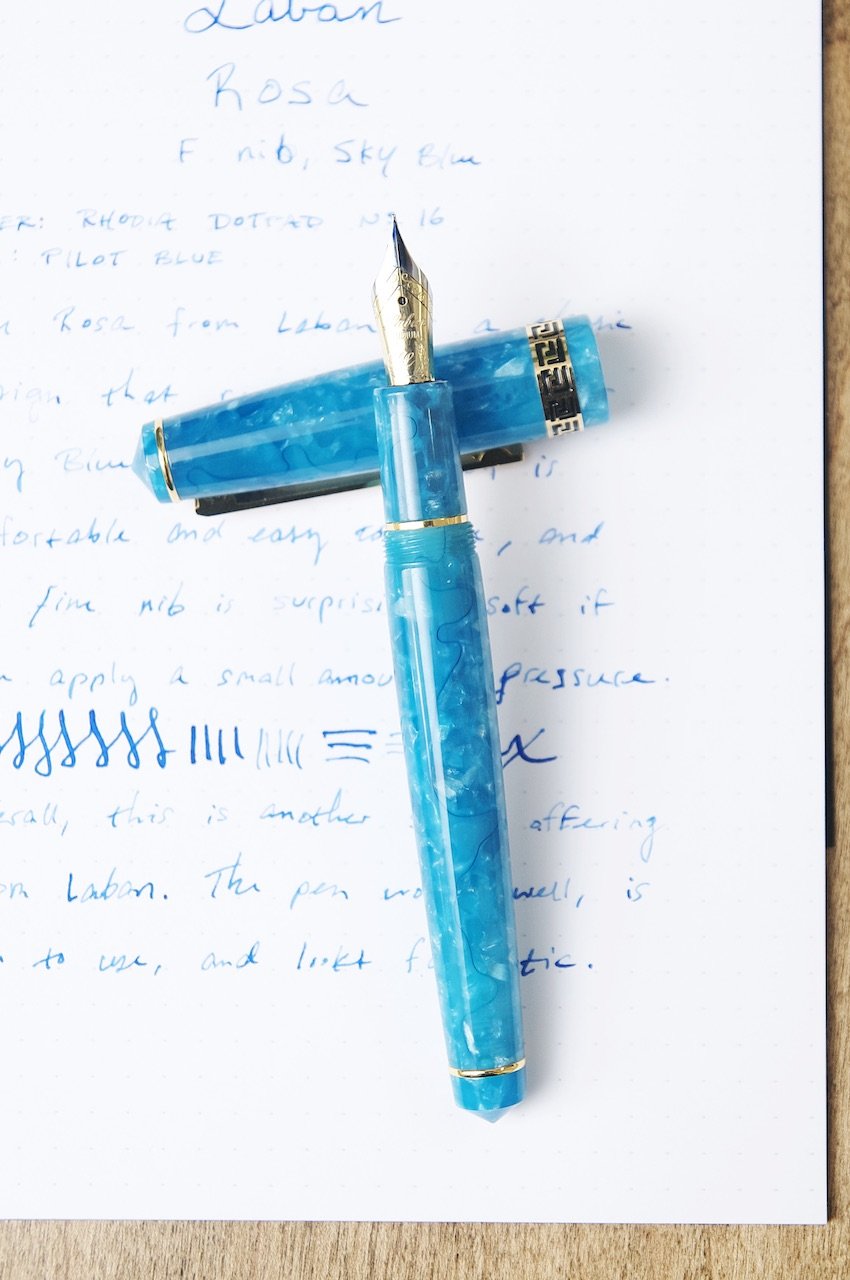 Laban
Rosa
F nib, Sky Blue
ER: RHODIA DOTPAD Nº 16
: PILOT BLUE
Rosa from Laban a
that
Blue is
fortable and easy, and
fine nib is surprisi soft if
apply a small amou pressure.
erall, this is another offering
om Laban. The pen wo well, is
to use, and looks f tic.